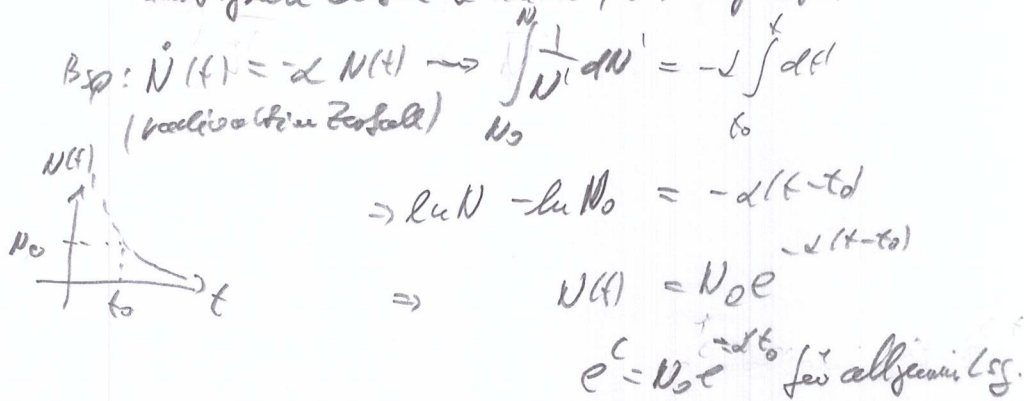 Bsp: Ṅ(t) = -α N(t) ⟶ ∫_{N₀}^{N} 1/N' dN' = -α ∫_{t₀}^{t} dt'
(radioaktiver Zerfall)
N(t)
⇒ ln N - ln N₀ = -α(t-t₀)
N₀
t₀ t
⇒ N(t) = N₀ e^{-α(t-t₀)}
e^C = N₀ e^{-αt₀} für allgemein Lsg.